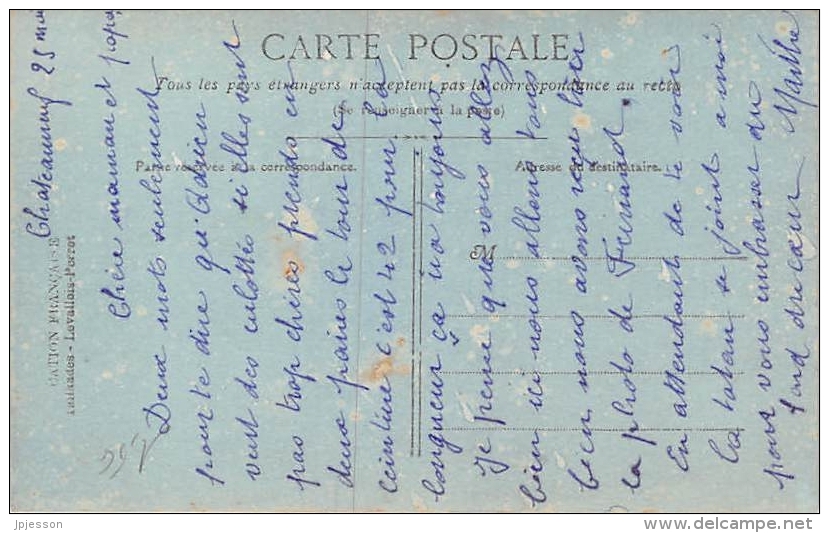 CARTE POSTALE
Tous les pays étrangers n'acceptent pas la correspondance au recto
(Se renseigner à la poste)
Partie réservée à la correspondance.
Adresse du destinataire.
M
CATION FRANÇAISE
Levallois-Perret
Chateauneuf 25 mai
Chère maman et papa
Deux mots seulement
pour te dire qu'Adrien
veut des culottes si elles sont
pas trop chères prends en
deux paires le tour de
ceinture c'est 42 pour la
longueur ça va toujours
Je pense que vous allez
bien ici nous allons tous
bien nous avons reçu hier
la photo de Fernand.
En attendant de te voir
la se joint a moi
pour vous embrasser du
fond du cœur Marthe
jpjesson
www.delcampe.net